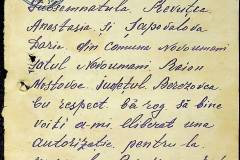 Subsemnatula, Revutea
Anastasia și Șapovalova
Daria, din Comuna Novoumani
Satul Novoumani, Raion
Mostovoe, județul Berezovca
Cu respect vă rog să bine
voiți a-mi elibera una
autorizație pentru la